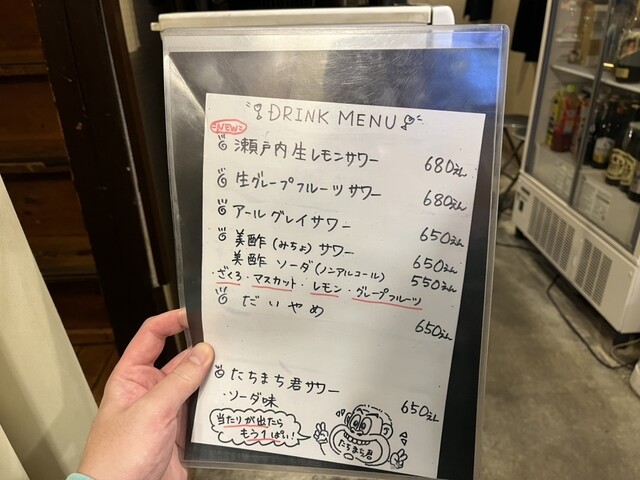 DRINK MENU
NEW
瀬戸内生レモンサワー 680えん
生グレープフルーツサワー 680えん
アールグレイサワー 650えん
美酢(みちょ)サワー 650えん
美酢 ソーダ(ノンアルコール) 550えん
・ざくろ・マスカット・レモン・グレープフルーツ
だいやめ 650えん
たちまち君サワー 650えん
・ソーダ味
当たりが出たら
もう1ぱい!
たちまち君